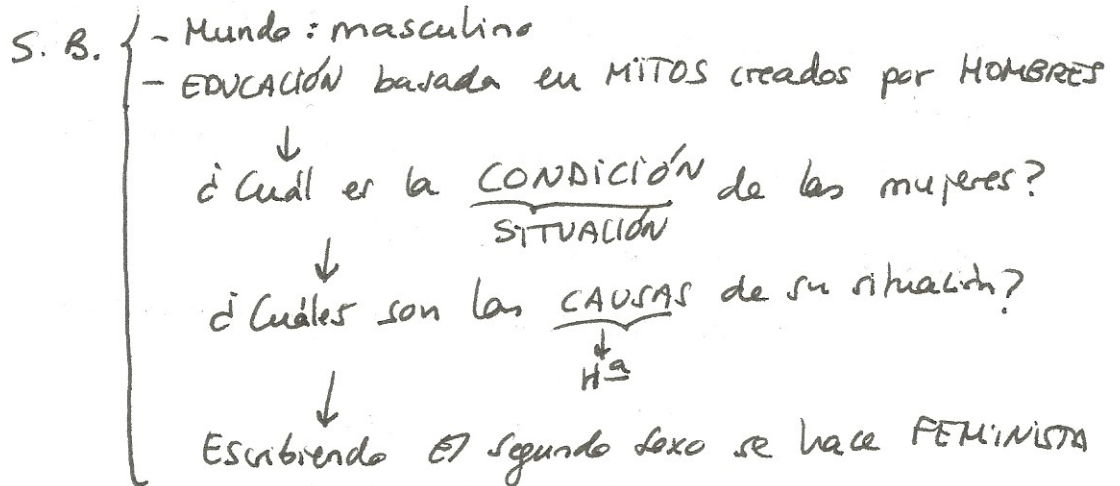 S. B. { - Mundo: masculino
- EDUCACIÓN basada en MITOS creados por HOMBRES
↓
¿Cuál es la CONDICIÓN de las mujeres?
SITUACIÓN
↓
¿Cuáles son las CAUSAS de su situación?
↓
Hª
↓
Escribiendo El segundo sexo se hace FEMINISTA